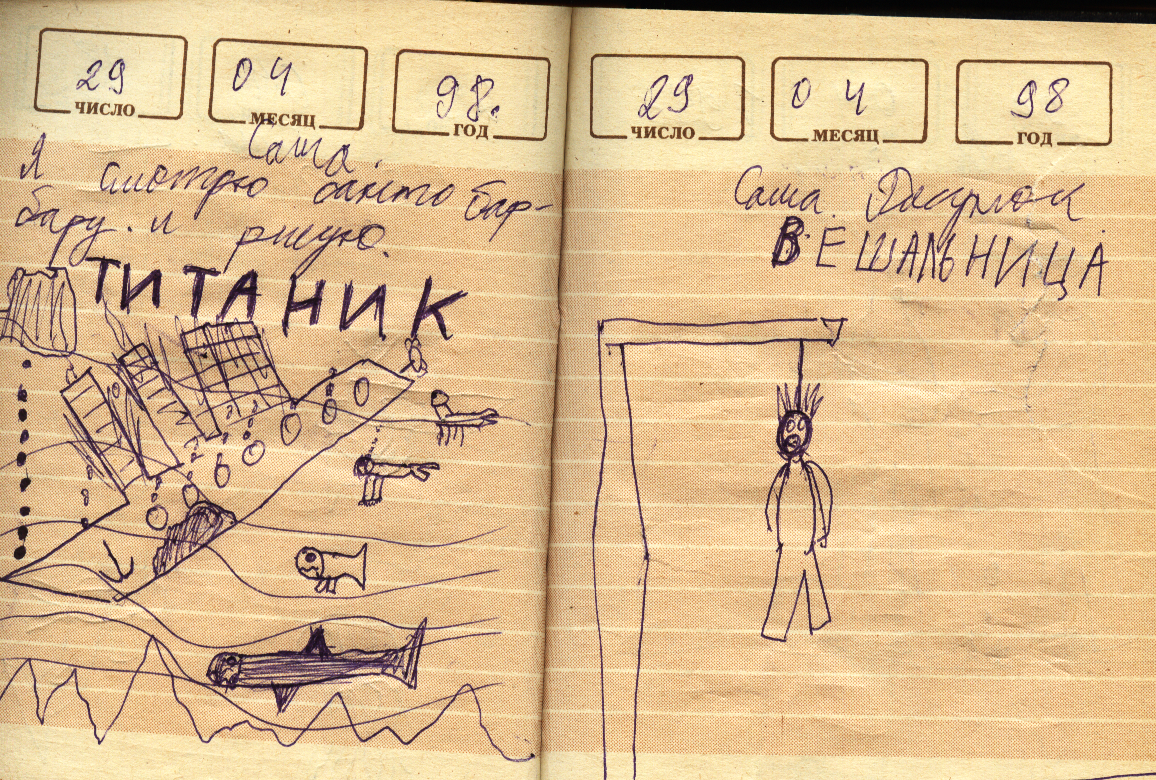 29 04 98.
ЧИСЛО МЕСЯЦ ГОД
Саша.
Я смотрю санто Бар-
бару. и рисую.
ТИТАНИК
29 04 98
ЧИСЛО МЕСЯЦ ГОД
Саша. Рисунок
ВЕШАЛЬНИЦА